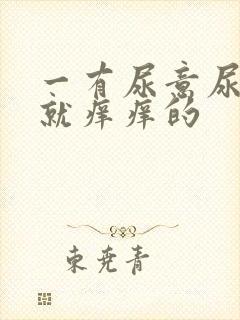 一有尿意尿
就痒痒的
束尧青